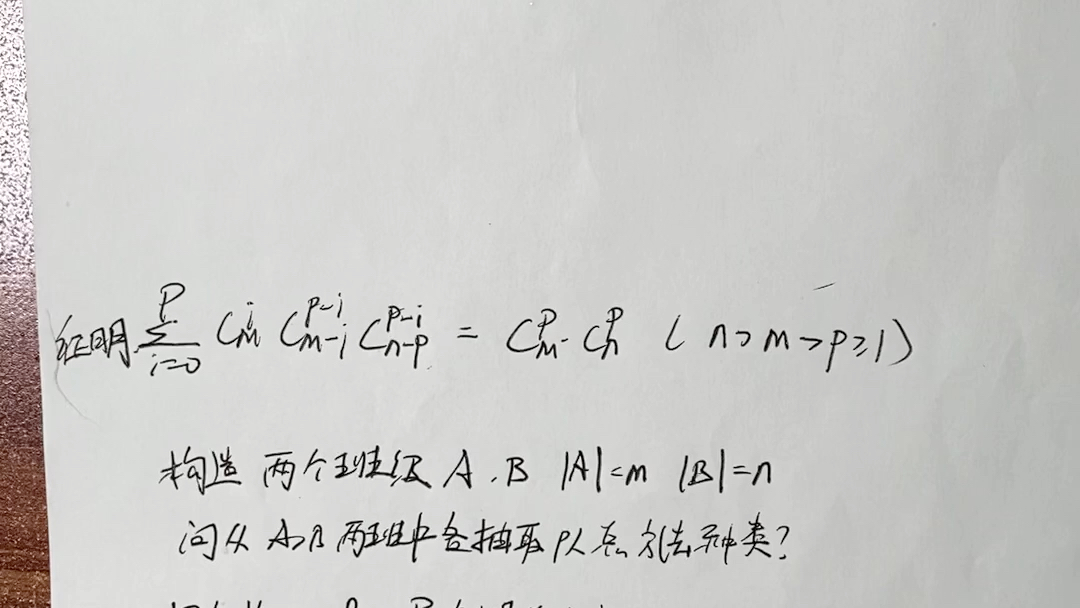 证明 \sum_{i=0}^{P} C_m^i C_{m-i}^{p-i} C_{n-p}^{p-i} = C_m^p · C_n^p ( n>m>p≥1)
构造 两个班级 A、B |A|=m |B|=n
问从 A、B 两班中各抽取 p人 总方法种类?